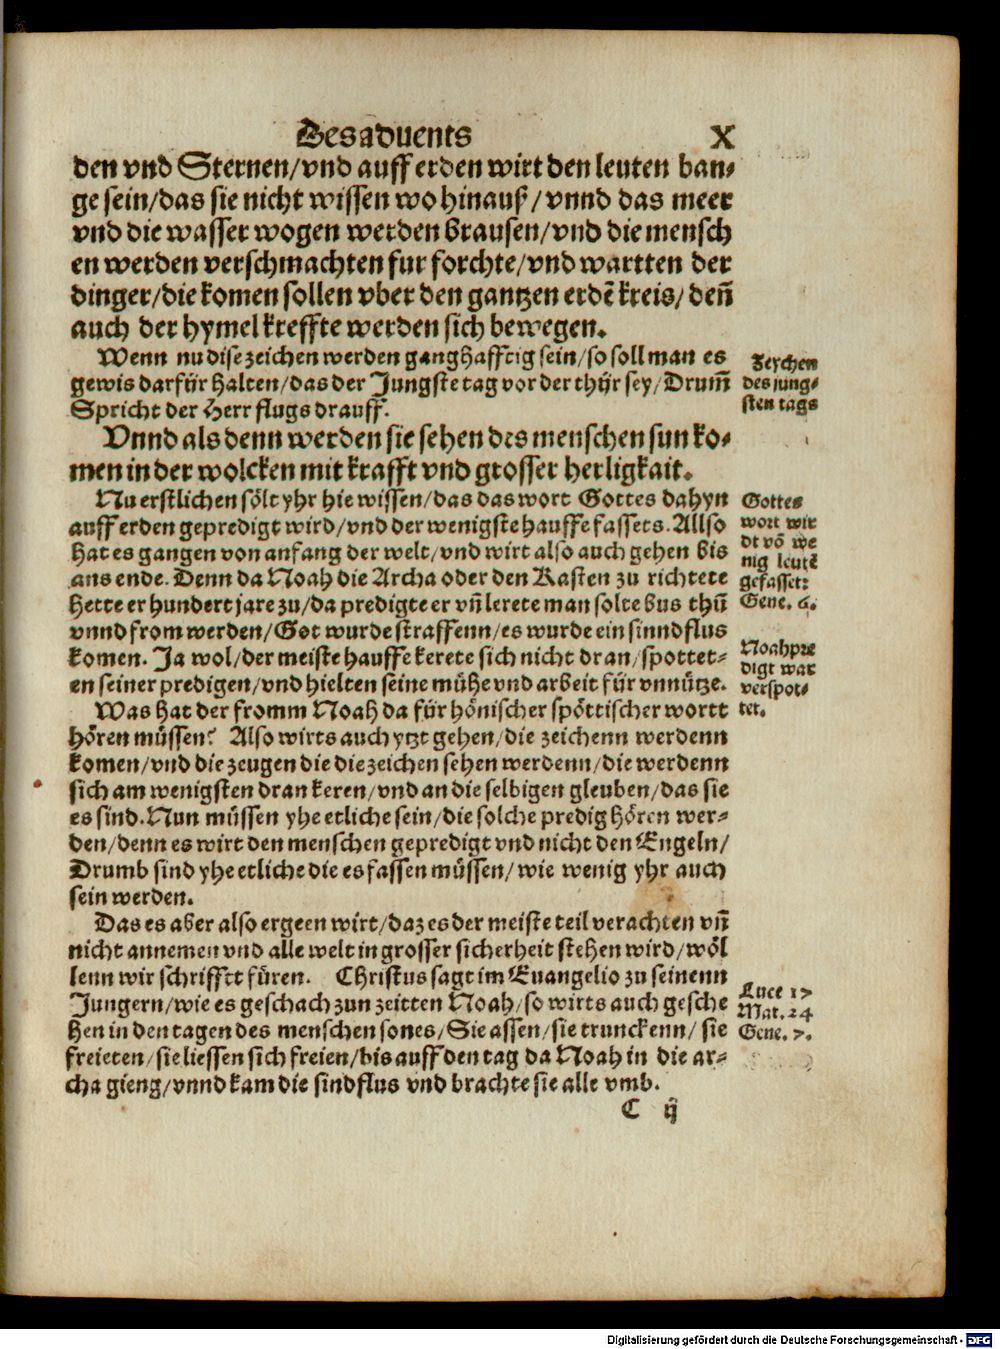 Des aduents X
den vnd Sternen/vnd auff erden wirt den leuten ban⸗
ge sein/das sie nicht wissen wo hinauß/vnnd das meer
vnd die wasser wogen werden brausen/vnd die mensch
en werden verschmachten fur forchte/vnd wartten der
dinger/die komen sollen vber den gantzen erdē kreis/deñ
auch der hymel kreffte werden sich bewegen.
Wenn nu dise zeichen werden ganghafftig sein/so soll man es
gewis darfür halten/das der Jungste tag vor der thür sey/Drum̃
Spricht der Herr flugs drauff.
Zeychen
des iung⸗
sten tags
Vnnd als denn werden sie sehen des menschen sun ko⸗
men in der wolcken mit krafft vnd grosser herligkait.
Nu erstlichen sölt yhr hie wissen/das das wort Gottes dahyn
auff erden gepredigt wird/vnd der wenigste hauffe fassets. Allso
hat es gangen von anfang der welt/vnd wirt also auch gehen bis
ans ende. Denn da Noah die Archa oder den Kasten zu richtete
hette er hundert jare zu/da predigte er vñ lerete man solte bus thũ
vnnd from werden/Got wurde straffenn/es wurde ein sinndflus
komen. Ja wol/der meiste hauffe kerete sich nicht dran/spottet⸗
en seiner predigen/vnd hielten seine mühe vnd arbeit für vnnütze.
Gottes
wort wir
dt võ we
nig leutē
gefasset:
Gene. 6.
Noah pre
digt war
verspot⸗
tet.
Was hat der fromm Noah da für hönischer spöttischer wortt
hören müssen? Also wirts auch ytzt gehen/die zeichenn werdenn
komen/vnd die zeugen die die zeichen sehen werdenn/die werdenn
sich am wenigsten dran keren/vnd an die selbigen gleuben/das sie
es sind. Nun müssen yhe etliche sein/die solche predig hören wer⸗
den/denn es wirt den menschen gepredigt vnd nicht den Engeln/
Drumb sind yhe etliche die es fassen müssen/wie wenig yhr auch
sein werden.
Das es aber also ergeen wirt/daz es der meiste teil verachten vñ
nicht annemen vnd alle welt in grosser sicherheit stehen wird/wöl
lenn wir schrifft füren. Christus sagt im Euangelio zu seinenn
Jungern/wie es geschach zun zeitten Noah/so wirts auch gesche
hen in den tagen des menschen sones/Sie assen/sie trunckenn/sie
freieten/sie liessen sich freien/bis auff den tag da Noah in die ar⸗
cha gieng/vnnd kam die sindflus vnd brachte sie alle vmb.
Luce 17
Mat. 24
Gene. 7.
C ij
Digitalisierung gefördert durch die Deutsche Forschungsgemeinschaft - DFG